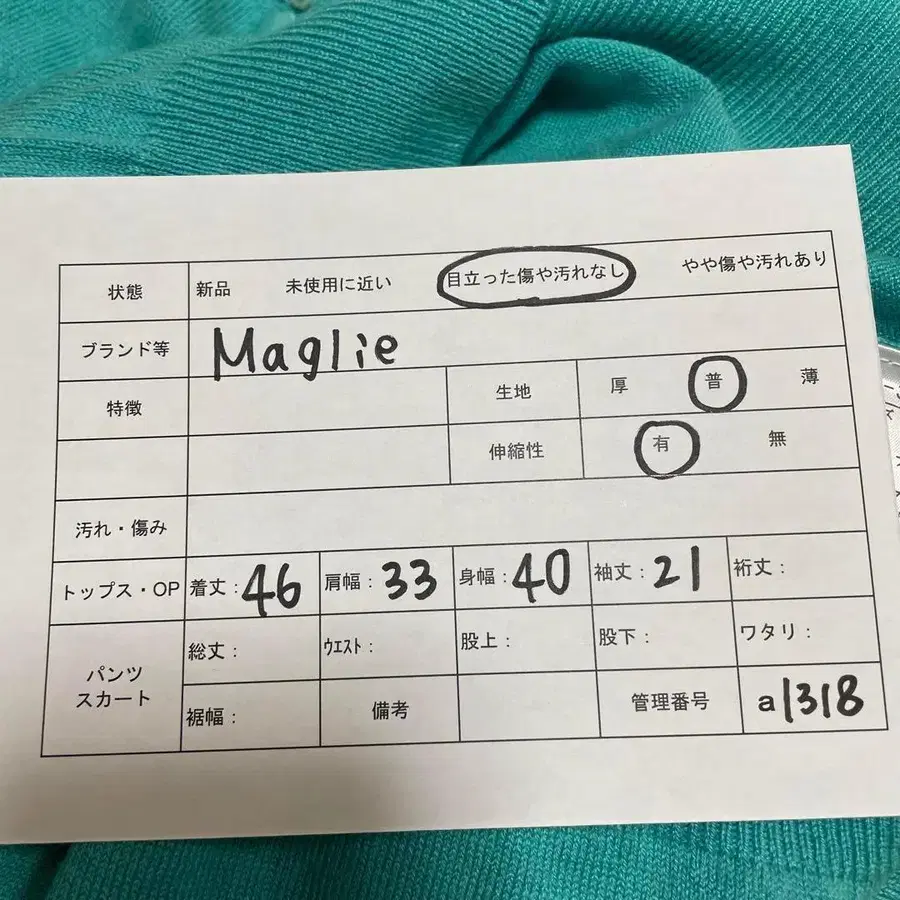 状態 新品 未使用に近い 目立った傷や汚れなし やや傷や汚れあり
ブランド等 Maglie
特徴 生地 厚 普 薄
伸縮性 有 無
汚れ・傷み
トップス・OP 着丈：46 肩幅：33 身幅：40 袖丈：21 裄丈：
パンツ
スカート
総丈： ｳｴｽﾄ： 股上： 股下： ワタリ：
裾幅： 備考 管理番号 a1318